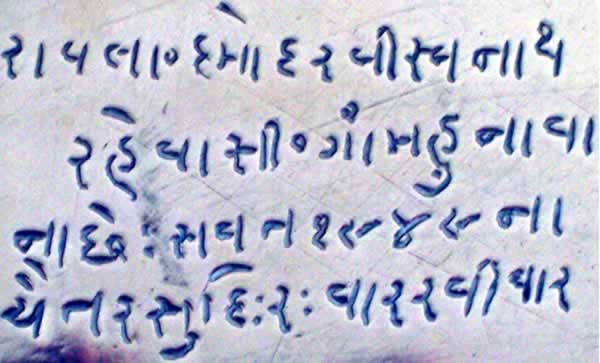 રાવલા૦દમોદરવીસ્વનાથ
રહેવાસી૦ગાંમહુનાવા
નાછેઃસવત૧૯૪૯ના
ચૈતરસુદિઃ૨ઃવારરવીવાર